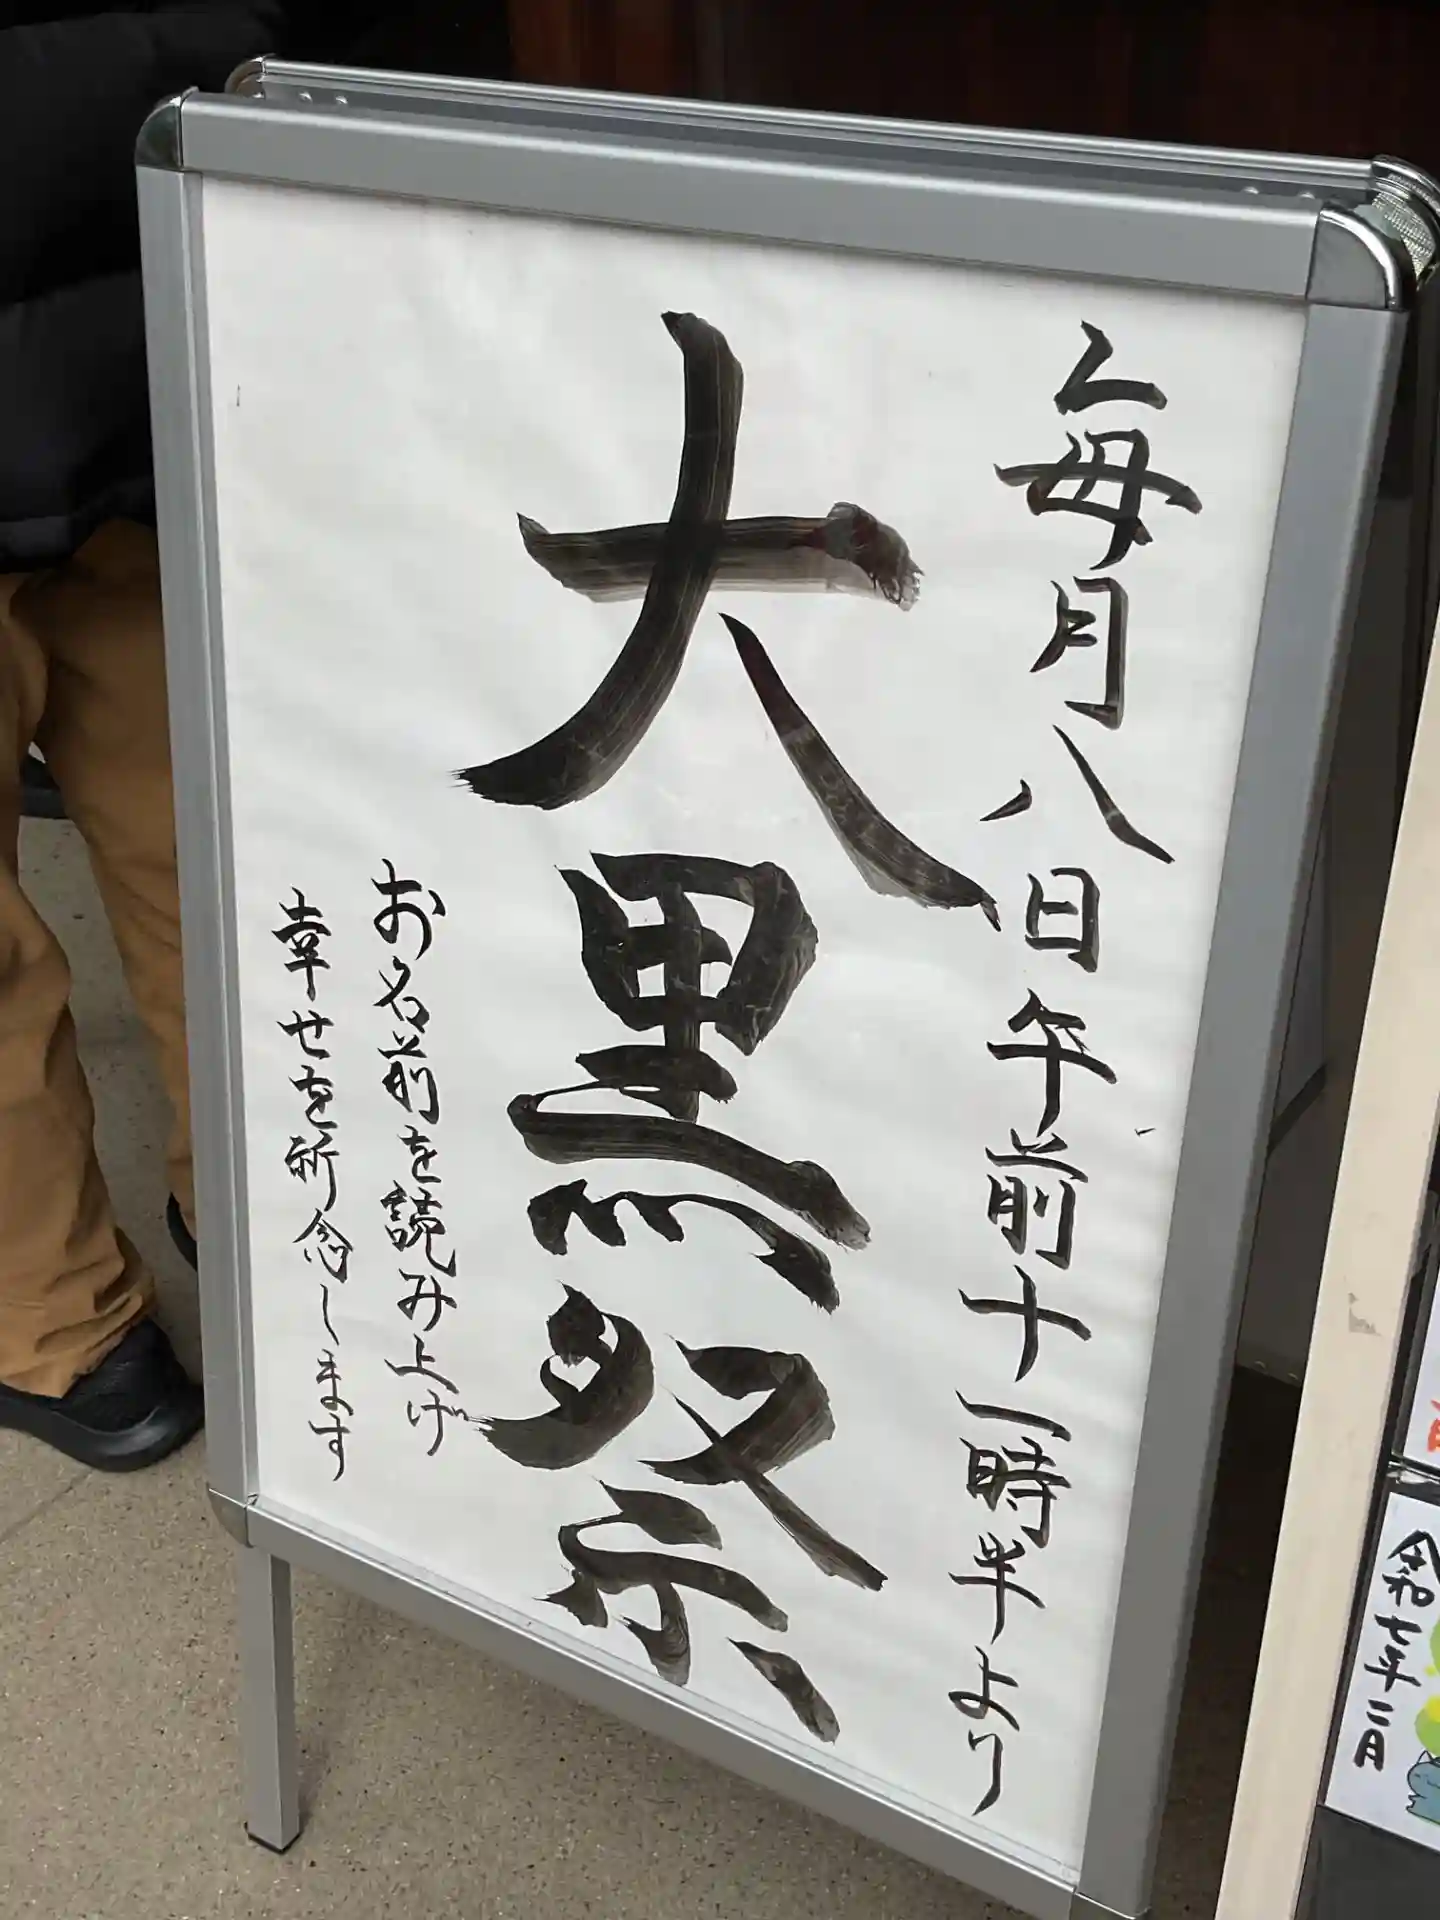 毎月八日午前十一時半より
大黒祭
お名前を読み上げ
幸せを祈念します
令和七年二月